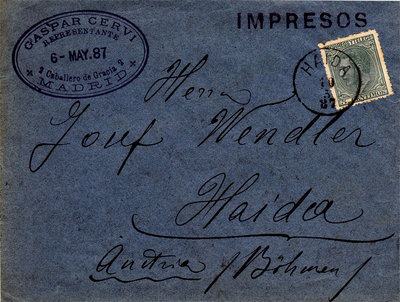 GASPAR CERVI
REPRESENTANTE
6-MAY.87
Caballero de Gracia
MADRID
IMPRESOS
HAIDA
10
87
Herrn
Josef Wendler
Haida
Austria / Böhmen /